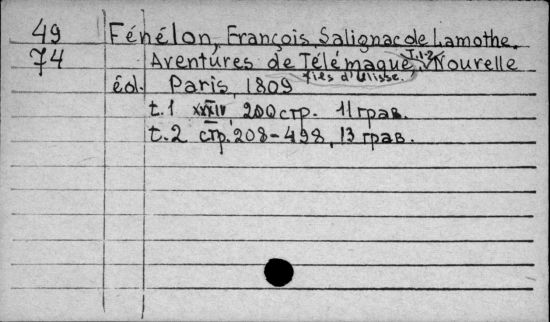 49 Fénélon, François Salignac de Lamothe.
74 Aventures de Télémaque, T.1-2 Nourelle
fils d'Ulisse.
éd. Paris, 1809
t.1 XXXIV, 200 стр. 11 грав.
t.2 стр. 208-498, 13 грав.